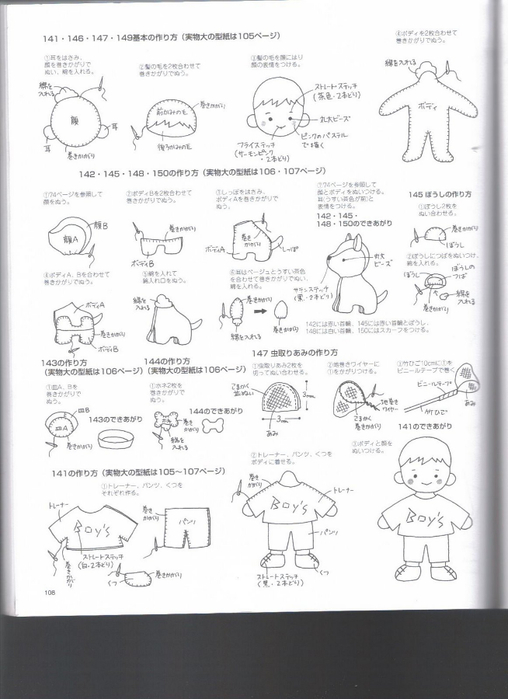 141・146・147・149基本の作り方（実物大の型紙は105ページ）
①耳をはさみ、
顔を巻きかがりで
ぬい、綿を入れる。
綿を
入れる
顔
耳
耳
巻きかがり
②髪の毛を2枚合わせて
巻きかがりでぬう。
巻きかがり
前がみの毛
後ろがみの毛
③髪の毛を顔にはり
顔の表情をつける。
ストレートステッチ
(茶色・2本どり)
丸大ビーズ
ピンクのパステル
で描く
フライステッチ
(サーモンピンク
・2本どり)
④ボディを2枚合わせて
巻きかがりでぬう。
綿を入れる
ボディ
142・145・148・150の作り方（実物大の型紙は106・107ページ）
①74ページを参照して
顔をぬう。
顔B
顔A
②ボディBを2枚合わせて
巻きかがりでぬう。
巻きかがり
ボディB
③しっぽをはさみ、
ボディAを巻きかがりで
ぬう。
巻き
かがり
ボディA
しっぽ
④ボディA、Bを合わせて
巻きかがりでぬう。
ボディA
巻きかがり
ボディB
⑤綿を入れて
綿入れ口をぬう。
綿を
入れる
巻きかがり
綿を入れる
巻きかがり
⑦74ページを参照して
表情をつける。
142・145・
148・150のできあがり
丸大
ビーズ
(黒・2本どり)
142には赤い首輪、145には赤い首輪とぼうし、
148には白い首輪、150にはスカーフをつける。
145 ぼうしの作り方
①ぼうし2枚を
ぬい合わせる。
巻きかがり
ぼうし
②ぼうしにつばをぬいつけ、
綿を入れる。
ぼうしの
つば
ぼうし
綿を
入れる
巻きかがり
143の作り方
(実物大の型紙は106ページ)
①皿A、Bを
巻きかがりで
ぬう。
皿B
皿A
巻きかがり
143のできあがり
144の作り方
(実物大の型紙は106ページ)
①ホネ2枚を
巻きかがりで
ぬう。
巻き
かがり
綿を
入れる
144のできあがり
147 虫取りあみの作り方
①虫取りあみ2枚を
使ってぬい合わせる。
こまかく
並ぬい
あみ
3cm
3cm
②地巻きワイヤーに
①をかがりつける。
地巻き
ワイヤー
こまかく
巻きかがり
③竹ひご10cmに①を
ビニールテープで巻く
ビニールテープ
竹ひご
あみ
141の作り方（実物大の型紙は105〜107ページ）
①トレーナー、パンツ、くつを
それぞれ作る。
トレーナー
Boy's
ストレートステッチ
(白・2本どり)
巻きかがり
巻き
かがり
パンツ
くつ
巻きかがり
②トレーナー、パンツ、くつを
ボディに着せる。
巻き
かがり
トレーナー
Boy's
パンツ
くつ
ストレートステッチ
(黒・2本どり)
③ボディと顔を
ぬいつける。
141のできあがり
Boy's
108